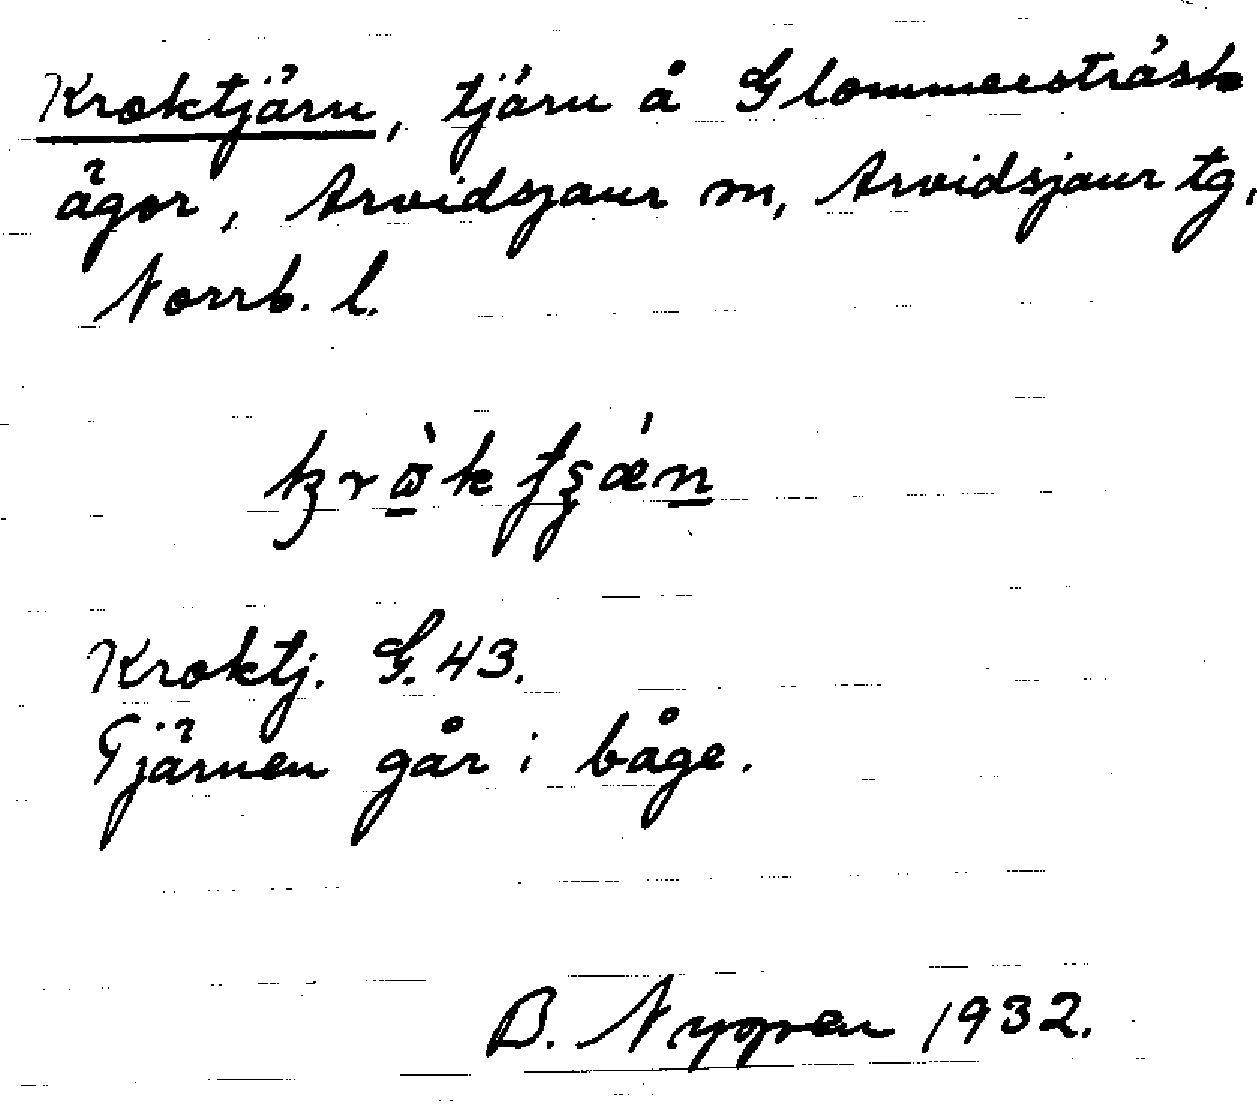 Kroktjärn, tjärn å Glommersträsk
ägor, Arvidsjaur sn, Arvidsjaur tg,
Norrb. l.
Kroktj. G. 43.
Tjärnen går i båge.
B. Nygren 1932.